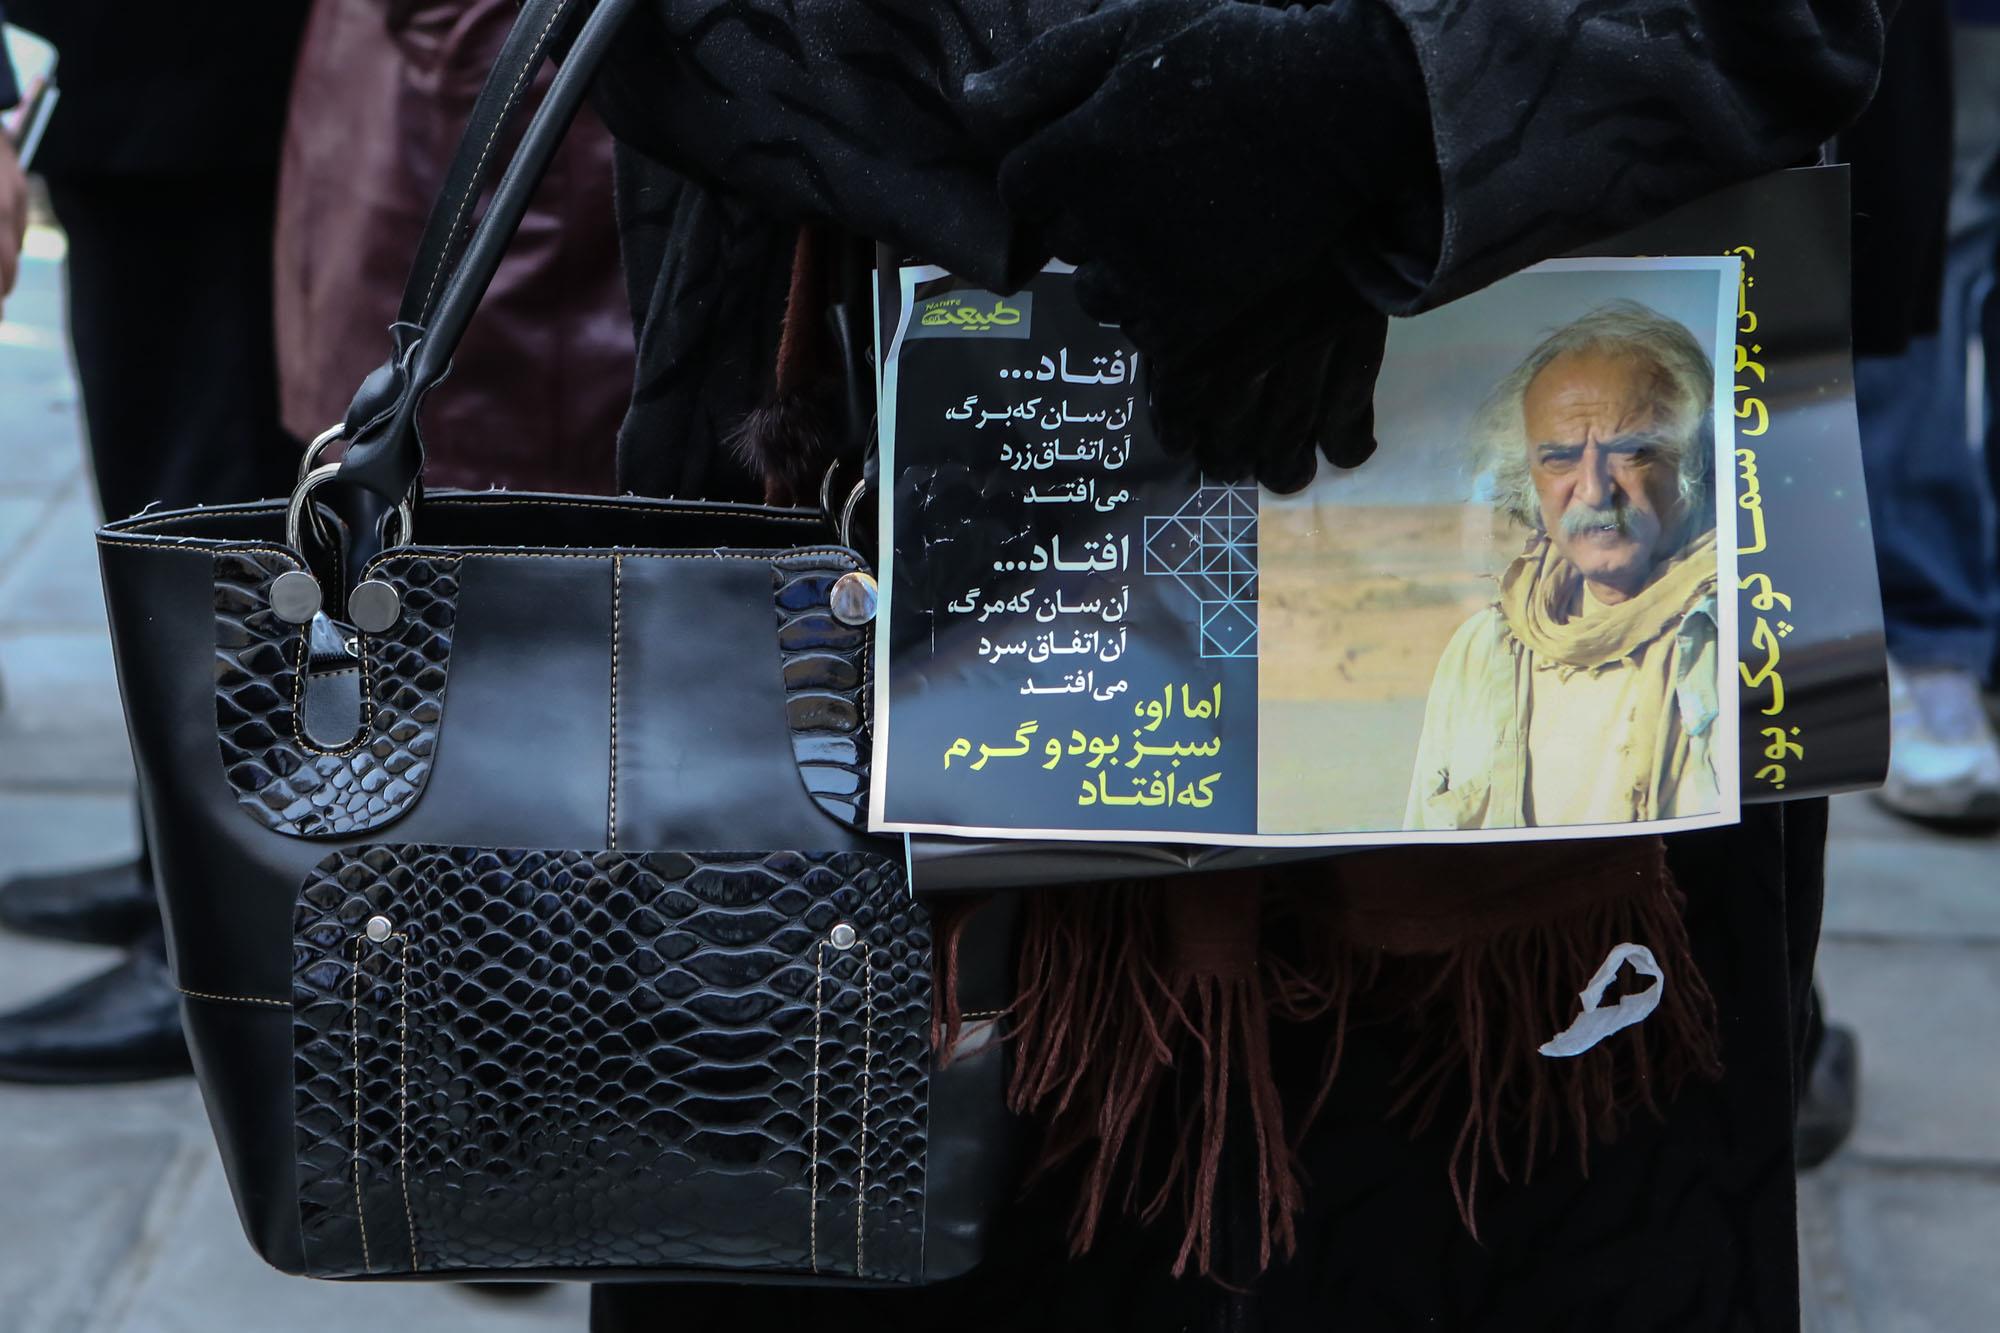 Nature
طبیعت
افتاد...
آن سان که برگ،
آن اتفاق زرد
می افتد
افتاد...
آن سان که مرگ،
آن اتفاق سرد
می افتد
اما او،
سبز بود و گرم
که افتاد
زمین برای شما کوچک بود.